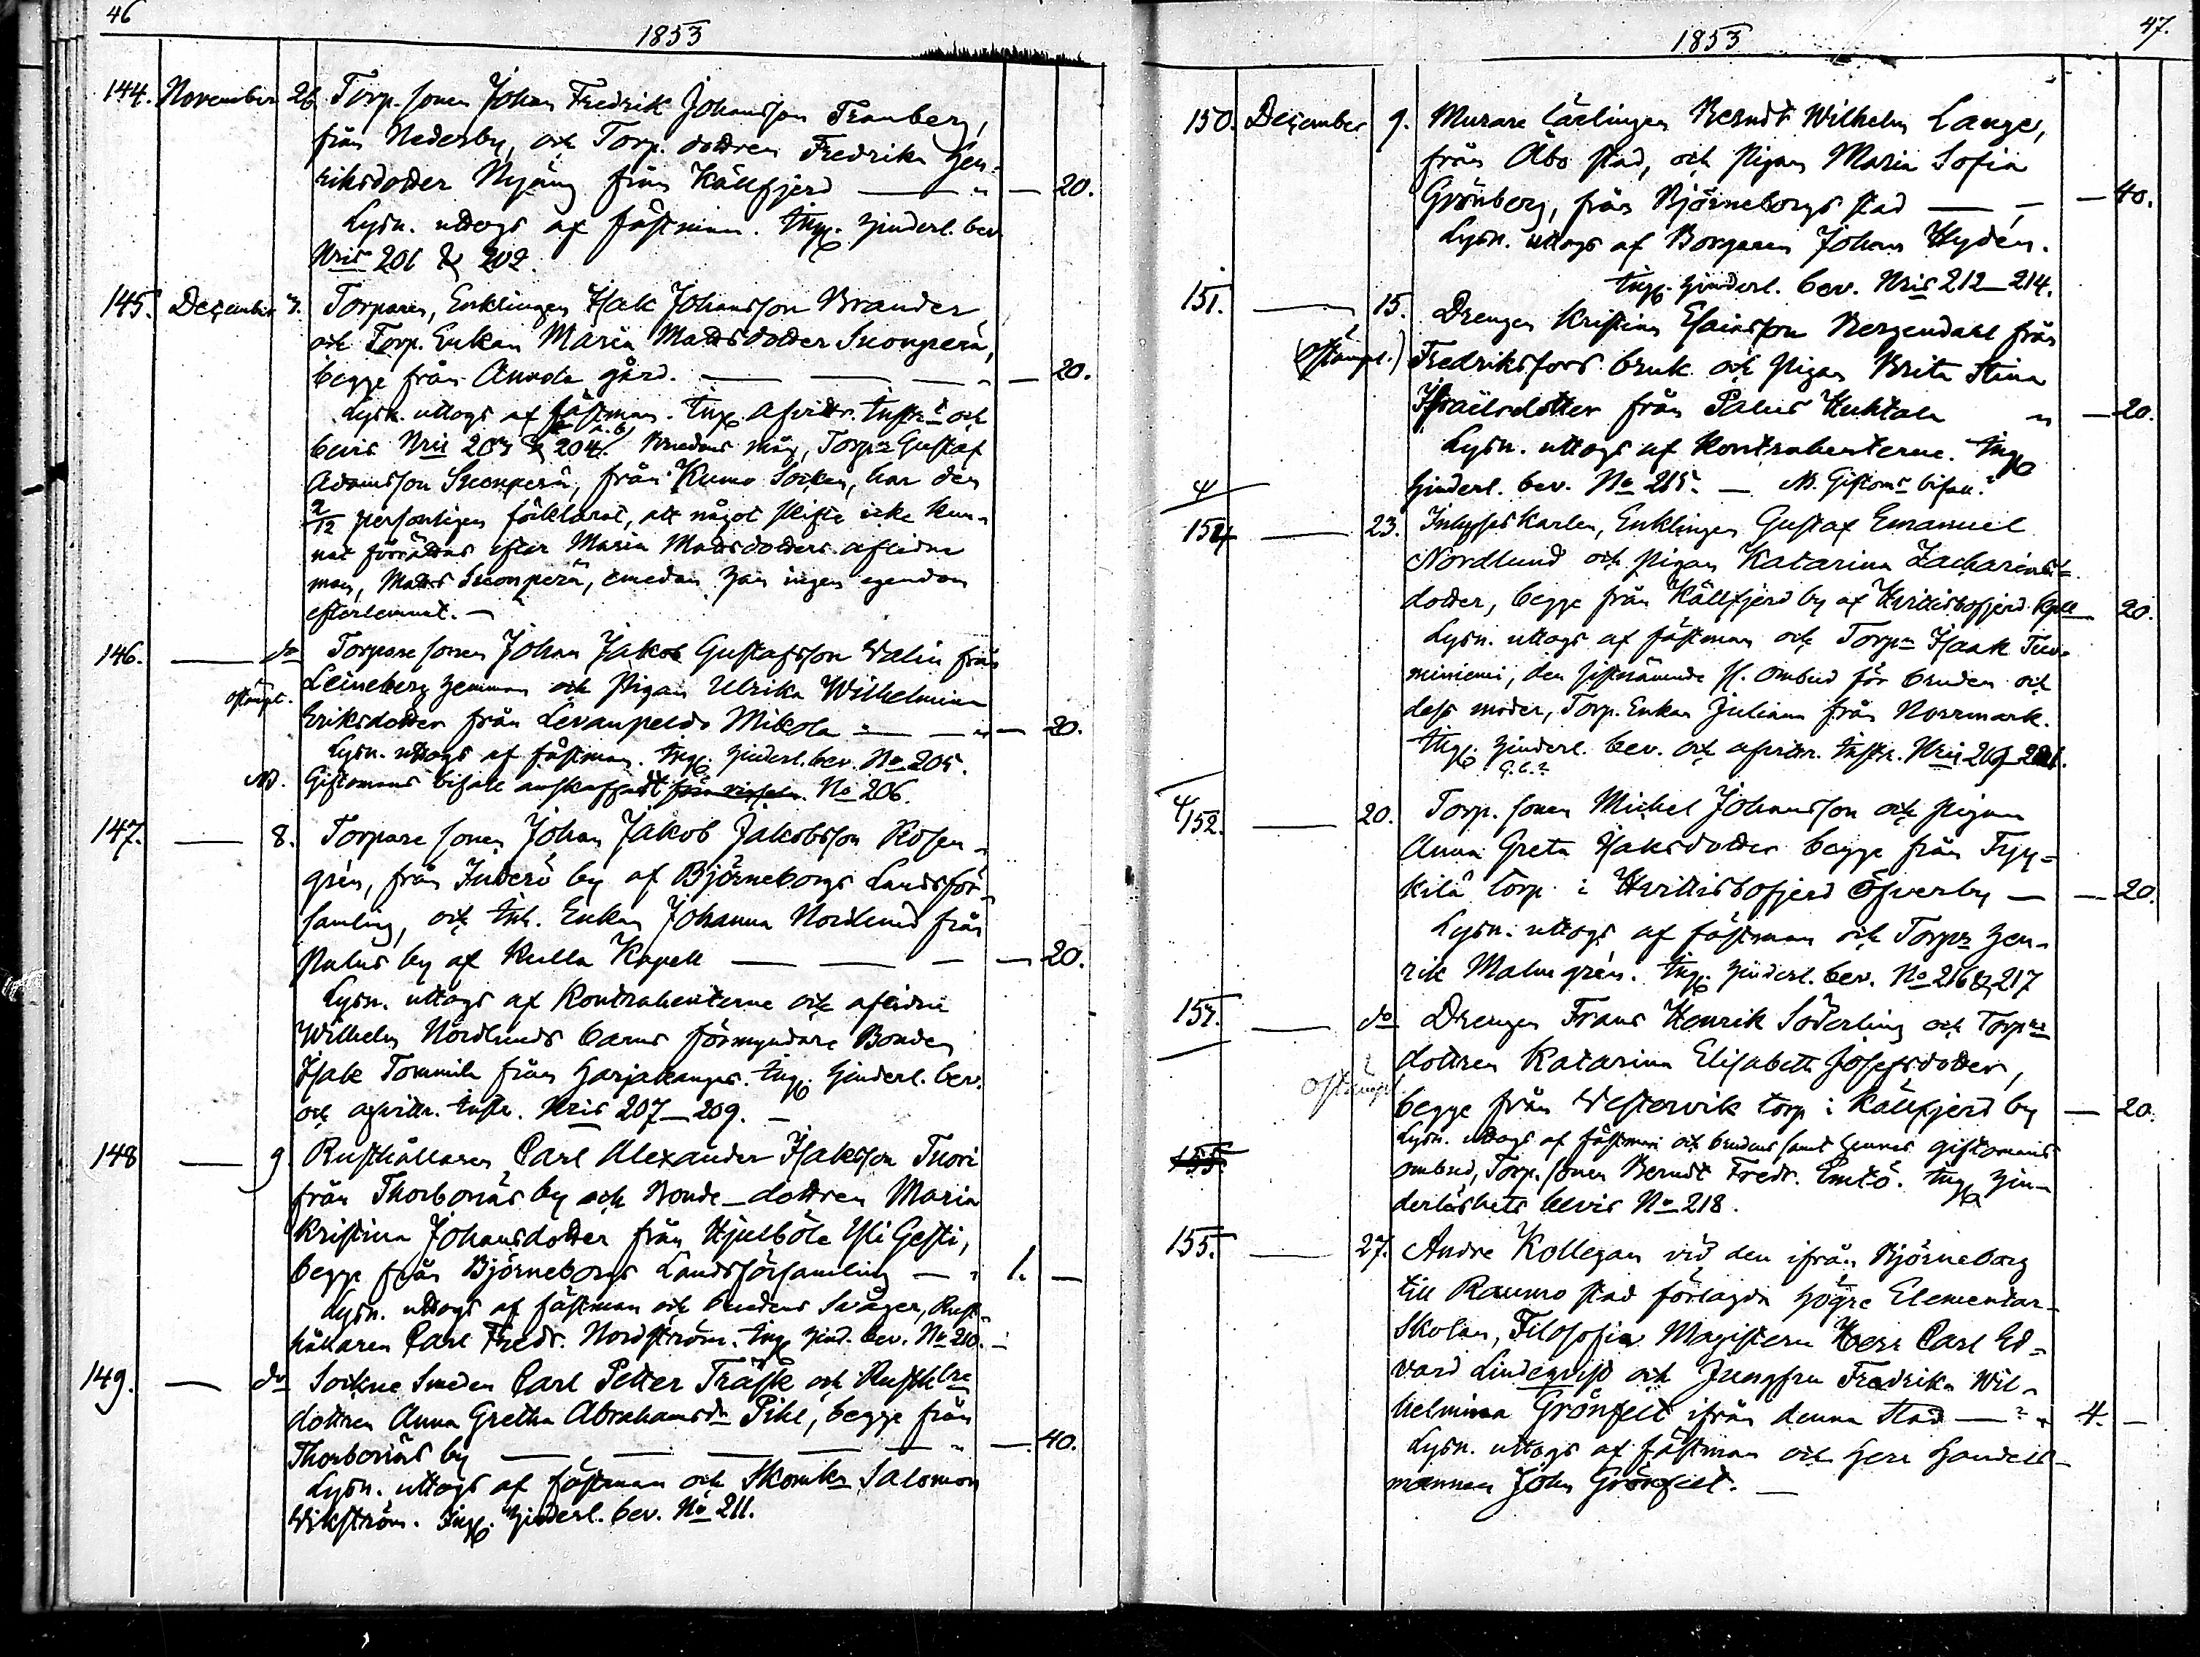 46
1853
144. November 26 Torp. sonen Johan Fredrik Johansson Tranberg,
från Nederby, och Torp. dottren Fredrika Hen-
riksdotter Nyäng från Källfjerd — " — 20.
Lysn. uttogs af fästman. Ing. hinderl. bev.
Nris 201 & 202.
145. December 7. Torparen, Enklingen Isak Johansson Brander
och Torp. Enkan Maria Mattsdotter Suonperä,
begge från Anuola gård. — — — " — 20.
Lysn. uttogs af fästman. Ing. afvittr. Instr. och
bevis Nris 203 & 204. Brudens måg, Torpn Gustaf
Adamsson Suonperä, från Kumo Socken, har den
2/12 personligen förklarat, att något skifte icke kun-
nat förrättas efter Maria Mattsdotters aflidne
man, Matts Suonperä, emedan han ingen egendom
efterlemnat. —
146. — do Torpare sonen Johan Jakob Gustafsson Walin från
Leineberg hemman och Pigan Ulrika Wilhelmina
ostämpl.
Eriksdotter från Levanpelds Mikola — — " — 20.
Lysn. uttogs af fästman. Ing. hinderl. bev. No 205.
NB. Giftomans bifall anskaffadt No 206.
147. — 8. Torpare sonen Johan Jakob Jakobsson Rosen-
grén, från Inderö by af Björneborgs Landsför-
samling, och Inh. Enkan Johanna Nordlund från
Palus by af Kulla Kapell — — — — 20.
Lysn. uttogs af Kontrahenterne och aflidne
Wilhelm Nordlunds barns förmyndare Bonden
Isak Tommila från Harjakangas. Ing. hinderl. bev.
och afvittr. Instr. Nris 207—209. —
148 — 9 Rusthållaren Carl Alexander Isaksson Tuori
från Thorbonäs by och Bonde-dottren Maria
Kristina Johansdotter från Hjulböle Yli Gesti,
begge från Björneborgs Landsförsamling — " 1. —
Lysn. uttogs af fästman och brudens Svåger, Rust-
hållaren Carl Fredr. Nordström. Ing. hind. bev. No 210. —
149. — do Sockne Smeden Carl Petter Träsk och Rusth.lre
dottren Anna Gretha Abrahamsdr Pihl, begge från
Thorbonäs by — — — — — " — 40.
Lysn. uttogs af fästman och Skomkr Salomon
Wikström. Ing. hinderl. bev. No 211.
47.
1853
150. December 9. Murare lärlingen Berndt Wilhelm Lange,
från Åbo stad, och Pigan Maria Sofia
Grönberg, från Björneborgs stad — — — 40.
Lysn. uttogs af Borgaren Johan Hydén.
Ing. hinderl. bev. Nris 212—214.
151. — 15. Drengen Kristian Esaiasson Bergendahl från
(ostämpl.) Fredriksfors bruk och Pigan Brita Stina
Israëlsdotter från Palus Huhtala " — 20.
Lysn. uttogs af Kontrahenterne. Ing.
hinderl. bev. No 215. — NB. Giftoms bifall?
154 — 23. Inhyses Karlen, Enklingen Gustaf Emanuel
Nordlund och Pigan Katarina Zacharias-
dotter, begge från Källfjerd by af Hvittisbofjerd Kpll — 20.
Lysn. uttogs af fästman och Torpn Isaak Tuo-
miniemi, den sistnämnde ss. ombud för bruden och
dess moder, Torp. Enkan Juliana från Norrmark.
Ing. hinderl. bev. och afvittr. Instr. Nris 219—221.
4/152. — 20. Torp. sonen Michel Johansson och Pigan
Anna Greta Isaksdotter begge från Tyy-
kilä torp i Hvittisbofjerd Öfverby — — 20.
Lysn. uttogs af fästman och Torpn Hen-
rik Malmgrén. Ing. hinderl. bev. No 216 & 217
153. — do Drengen Frans Henrik Söderling och Torpre
dottren Katarina Elisabeth Josefsdotter,
ostämpl
begge från Westervik torp i Källfjerd by — 20.
Lysn. uttogs af fästman och brudens samt hennes giftomans
155. ombud, Torp. sonen Berndt Fredr. Emtö. Ing. hin-
derlöshets bevis No 218.
155. — 27. Andre Kollegan vid den ifrån Björneborg
till Raumo stad förlagda högre Elementar-
Skolan, Filosofie Magistern Herr Carl Ed-
vard Lindeqvist och Jungfru Fredrika Wil-
helmina Grönfelt ifrån denna Stad — " 4. —
Lysn. uttogs af fästman och Herr Handels-
mannen John Grönfelt. —